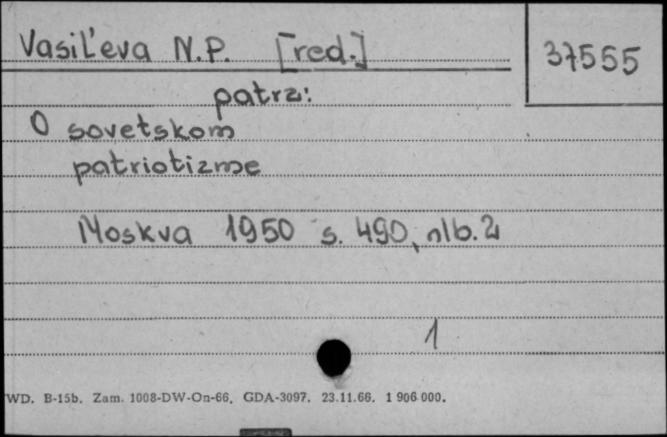 Vasil'eva N.P. [red.]
37555
patrz:
O sovetskom
patriotizme
Moskva 1950 s. 490, nlb. 2
1
WD. B-15b. Zam. 1008-DW-On-66. GDA-3097. 23.11.66. 1 906 000.